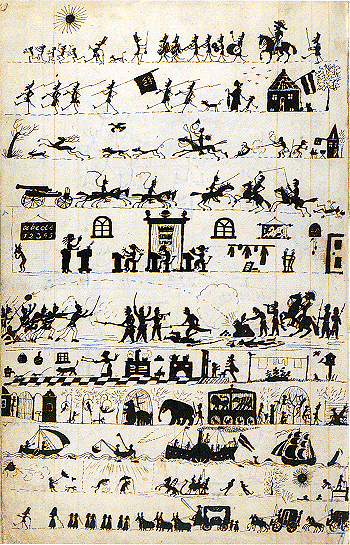 abcde
12345